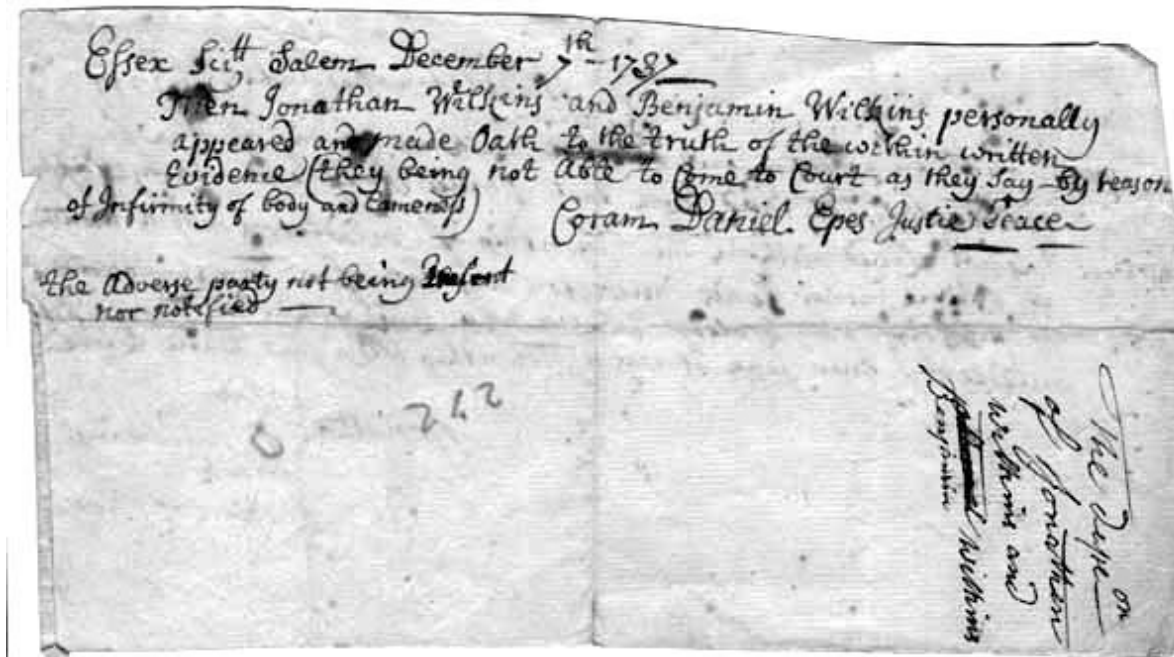 Essex Sc^tt Salem December 7th - 1737
Then Jonathan Wilkins and Benjamin Wilkins personally
appeared and made Oath to the truth of the within written
Evidence (they being not Able to Come to Court as they Say by reason
of Infirmity of body and Lameness) Coram Daniel Epes Justice Peace
the Adverse party not being Present
nor notified
242
The Depon
of Jonathan
Wilkins and
Wilkins
Benjamin